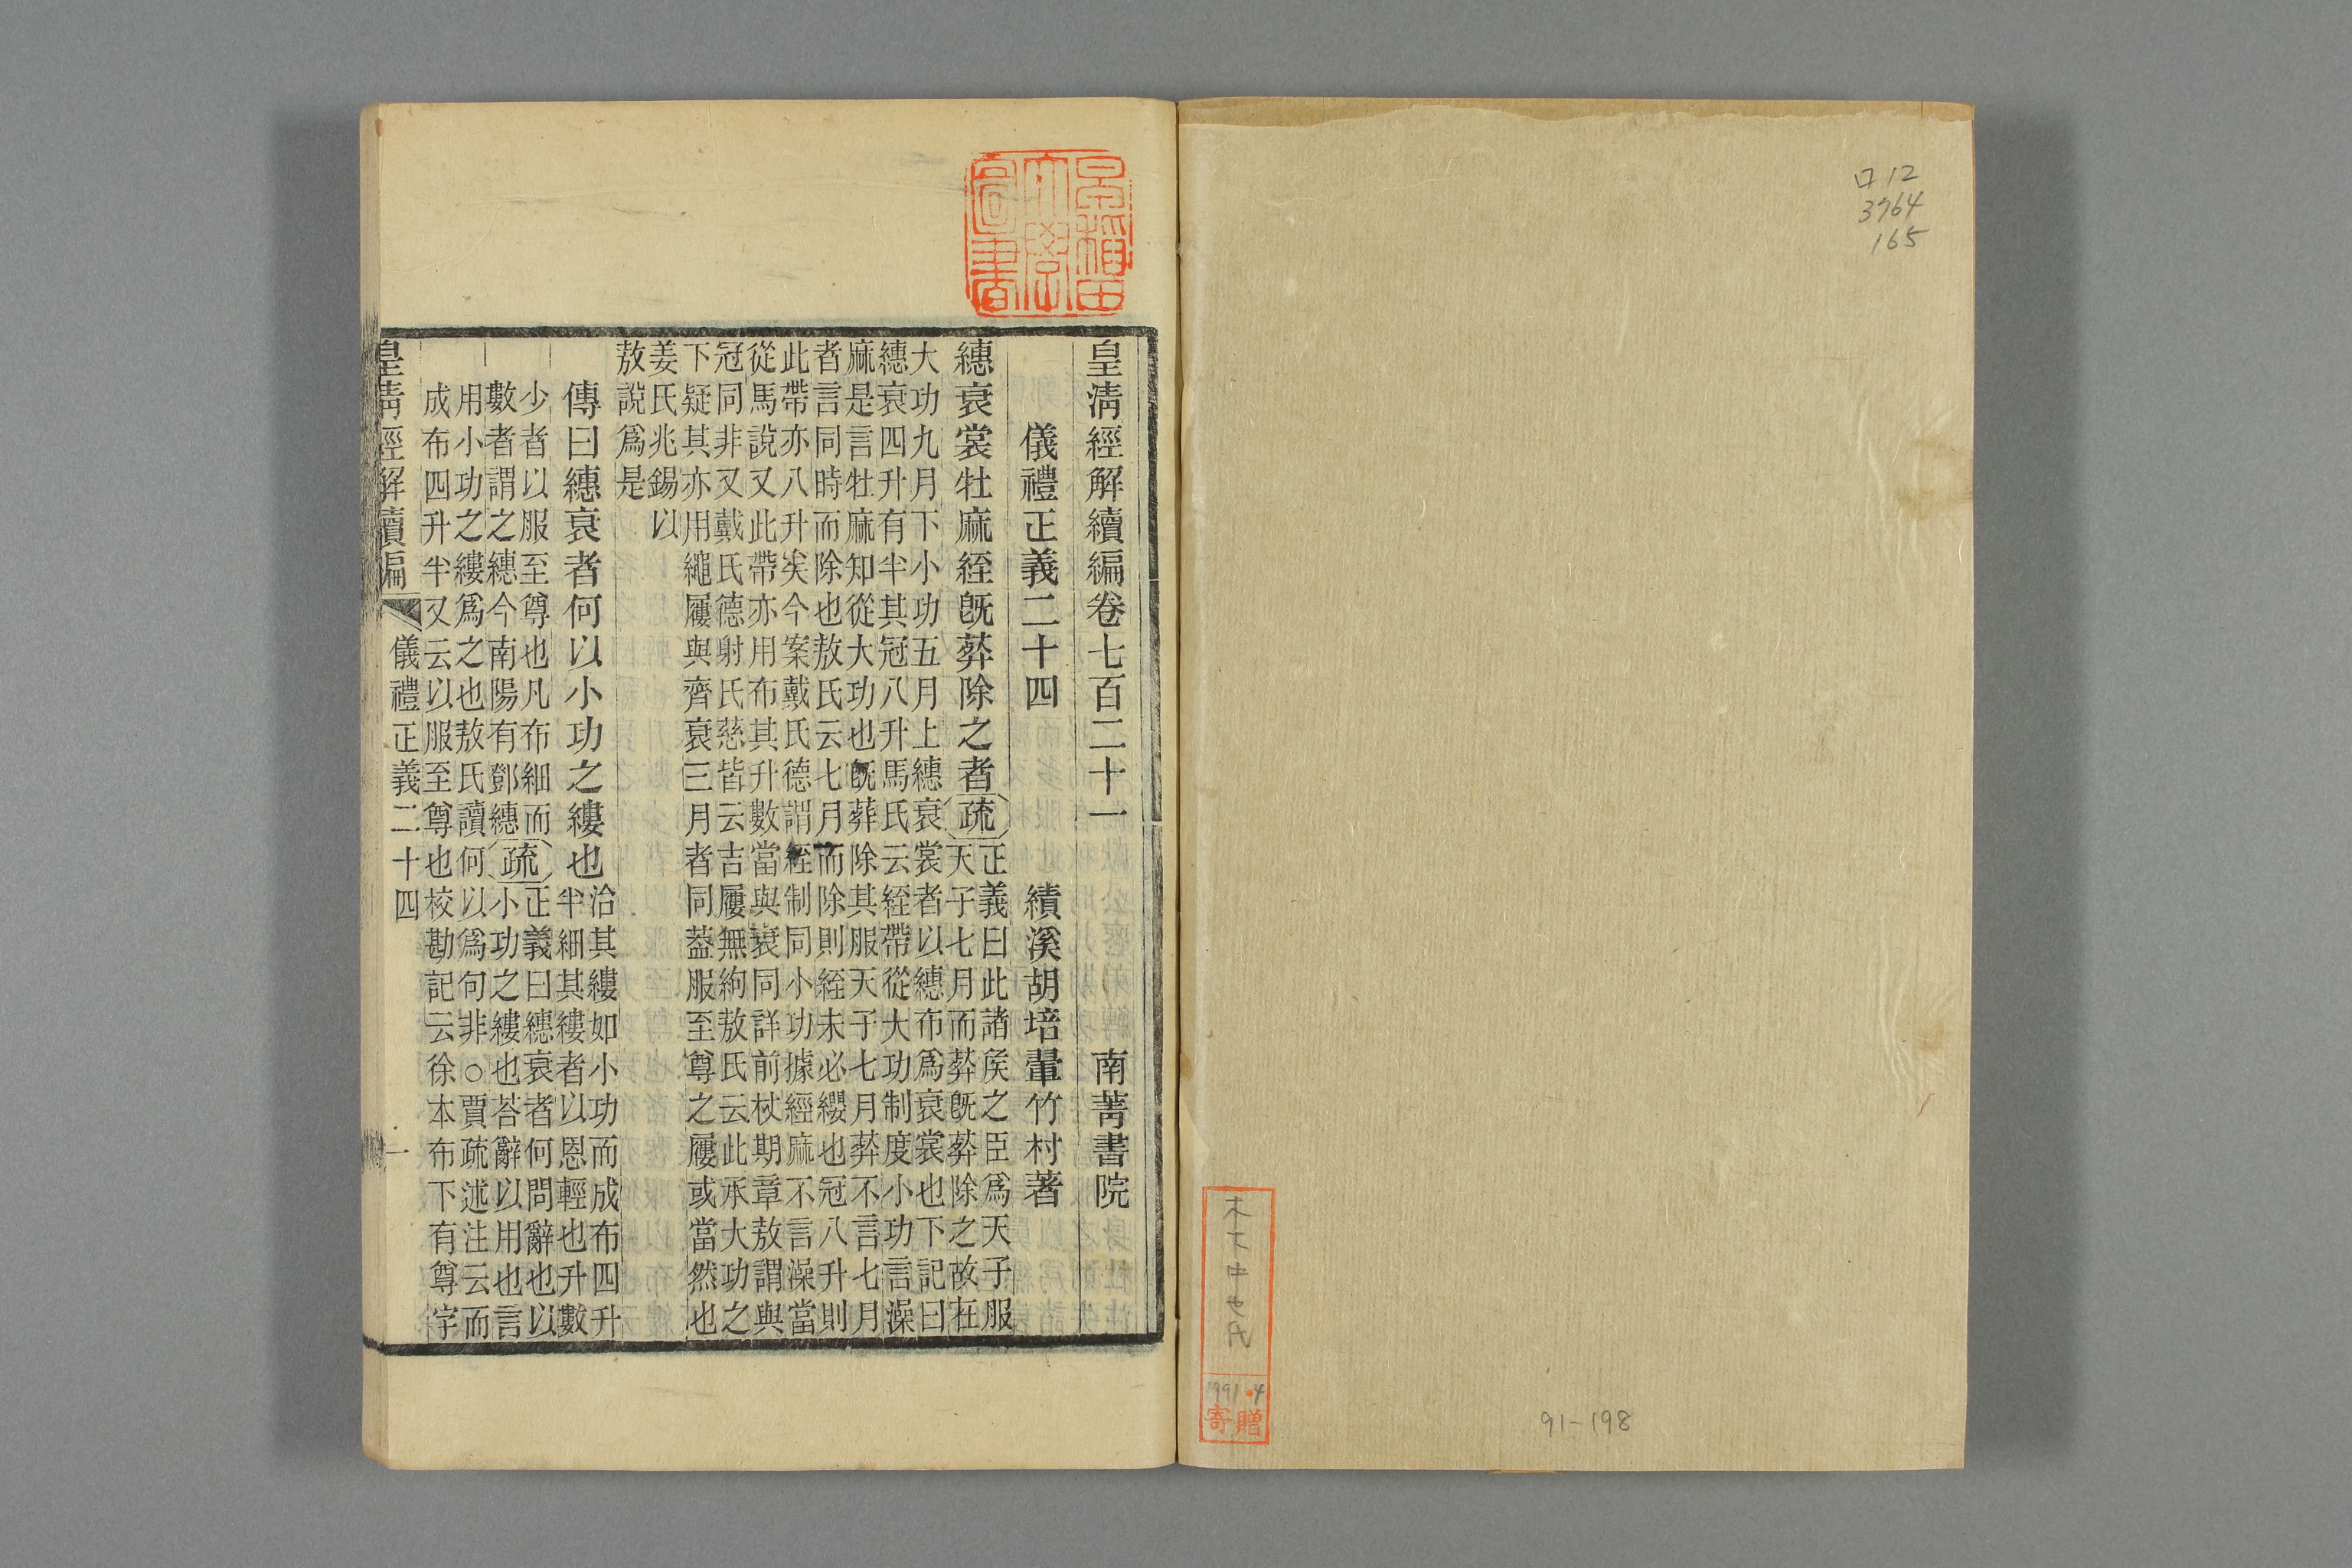 ロ12
3764
165
1991.4
寄贈
91-198
早稲田
大學
圖書
皇清經解續編卷七百二十一　南菁書院
儀禮正義二十四　績溪胡培翬竹村著
繐衰裳牡麻絰旣葬除之者疏
正義曰此諸矦之臣爲天子服
天子七月而葬旣葬除之故在
大功九月下小功五月上繐衰裳者以繐布爲衰裳也下記曰
繐衰四升有半其冠八升馬氏云絰帶從大功制度小功言澡
麻是言牡麻知從大功也旣葬除其服天子七月葬不言七月
者言同時而除也敖氏云七月而除則絰未必纓也冠八升則
此帶亦八升矣今案戴氏德謂絰制同小功據經麻不言澡當
從馬說又此帶亦用布其升數當與衰同詳前杖期章敖謂與
冠同非又戴氏德射氏慈皆云吉屨無絇敖氏云此承大功之
下疑其亦用繩屨與齊衰三月者同葢服至尊之屨或當然也
姜氏兆錫以
敖說爲是
傳曰繐衰者何以小功之縷也
治其縷如小功而成布四升
半細其縷者以恩輕也升數
少者以服至尊也凡布細而
數者謂之繐今南陽有鄧繐
疏
正義曰繐衰者何問辭也以
小功之縷也荅辭以用也言
用小功之縷爲之也敖氏讀何以爲句非○賈疏述注云而
成布四升半又云以服至尊也校勘記云徐本布下有尊字
皇清經解續編　儀禮正義二十四　一